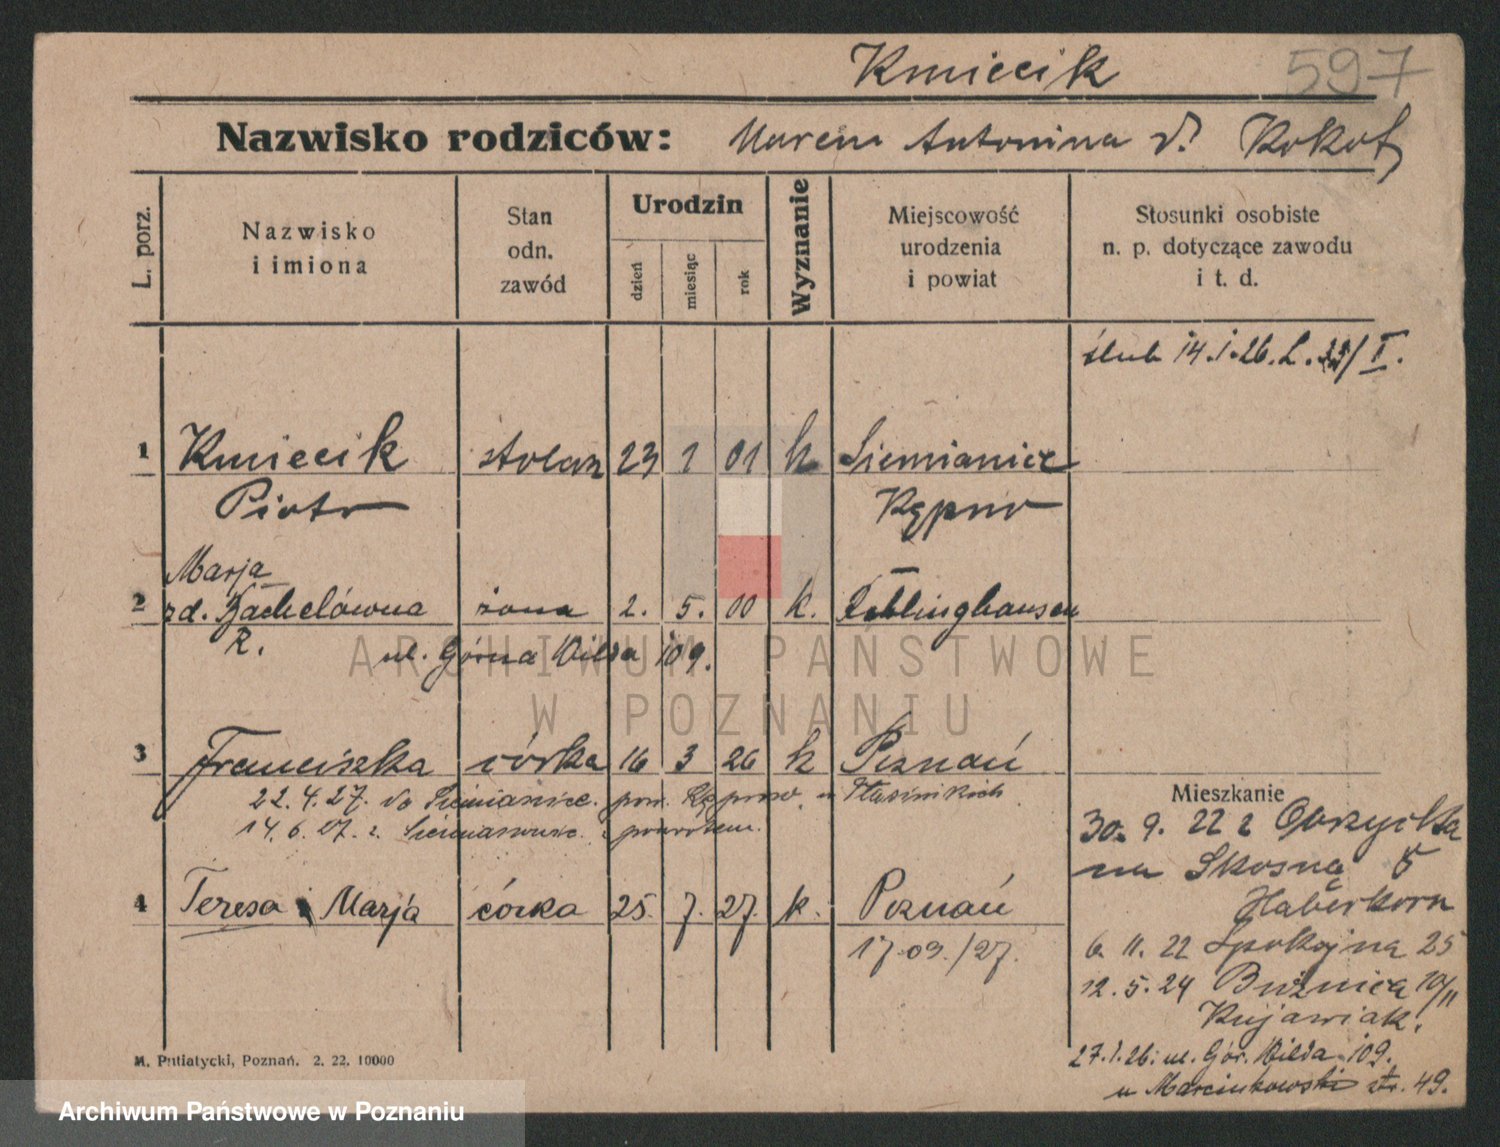 Kmiecik
597
Nazwisko rodziców: Antonina d. Kokot
L. porz.
Nazwisko
i imiona
Stan
odn.
zawód
Urodzin
dzień
miesiąc
rok
Wyznanie
Miejscowość
urodzenia
i powiat
Stosunki osobiste
n. p. dotyczące zawodu
i t. d.
ślub 14.1.26. L. /I.
1 Kmiecik stolarz 23 1 01 k Siemianice
Piotr Kępno
Marja
2 zd. żona 2. 5. 00 k.
R. ul. Górna Wilda 109.
3 Franciszka córka 16 3 26 k Poznań
22.4.27. do Siemianice. pow. Kępno.
14.6.27. z powrotem.
4 Teresa i Marja córka 25. 7. 27. k. Poznań
17.09./27.
Mieszkanie
30. 9. 22 z Obrzycka
na Skosną 5
Haberkorn
6. 11. 22 Spokojna 25
12. 5. 24 Bużnica 10/11
Kujawiak.
27.1.26: ul. Gór. Wilda 109.
u Marcinkowski str. 49.
M. Putiatycki, Poznań. 2. 22. 10000
ARCHIWUM PAŃSTWOWE
W POZNANIU
Archiwum Państwowe w Poznaniu